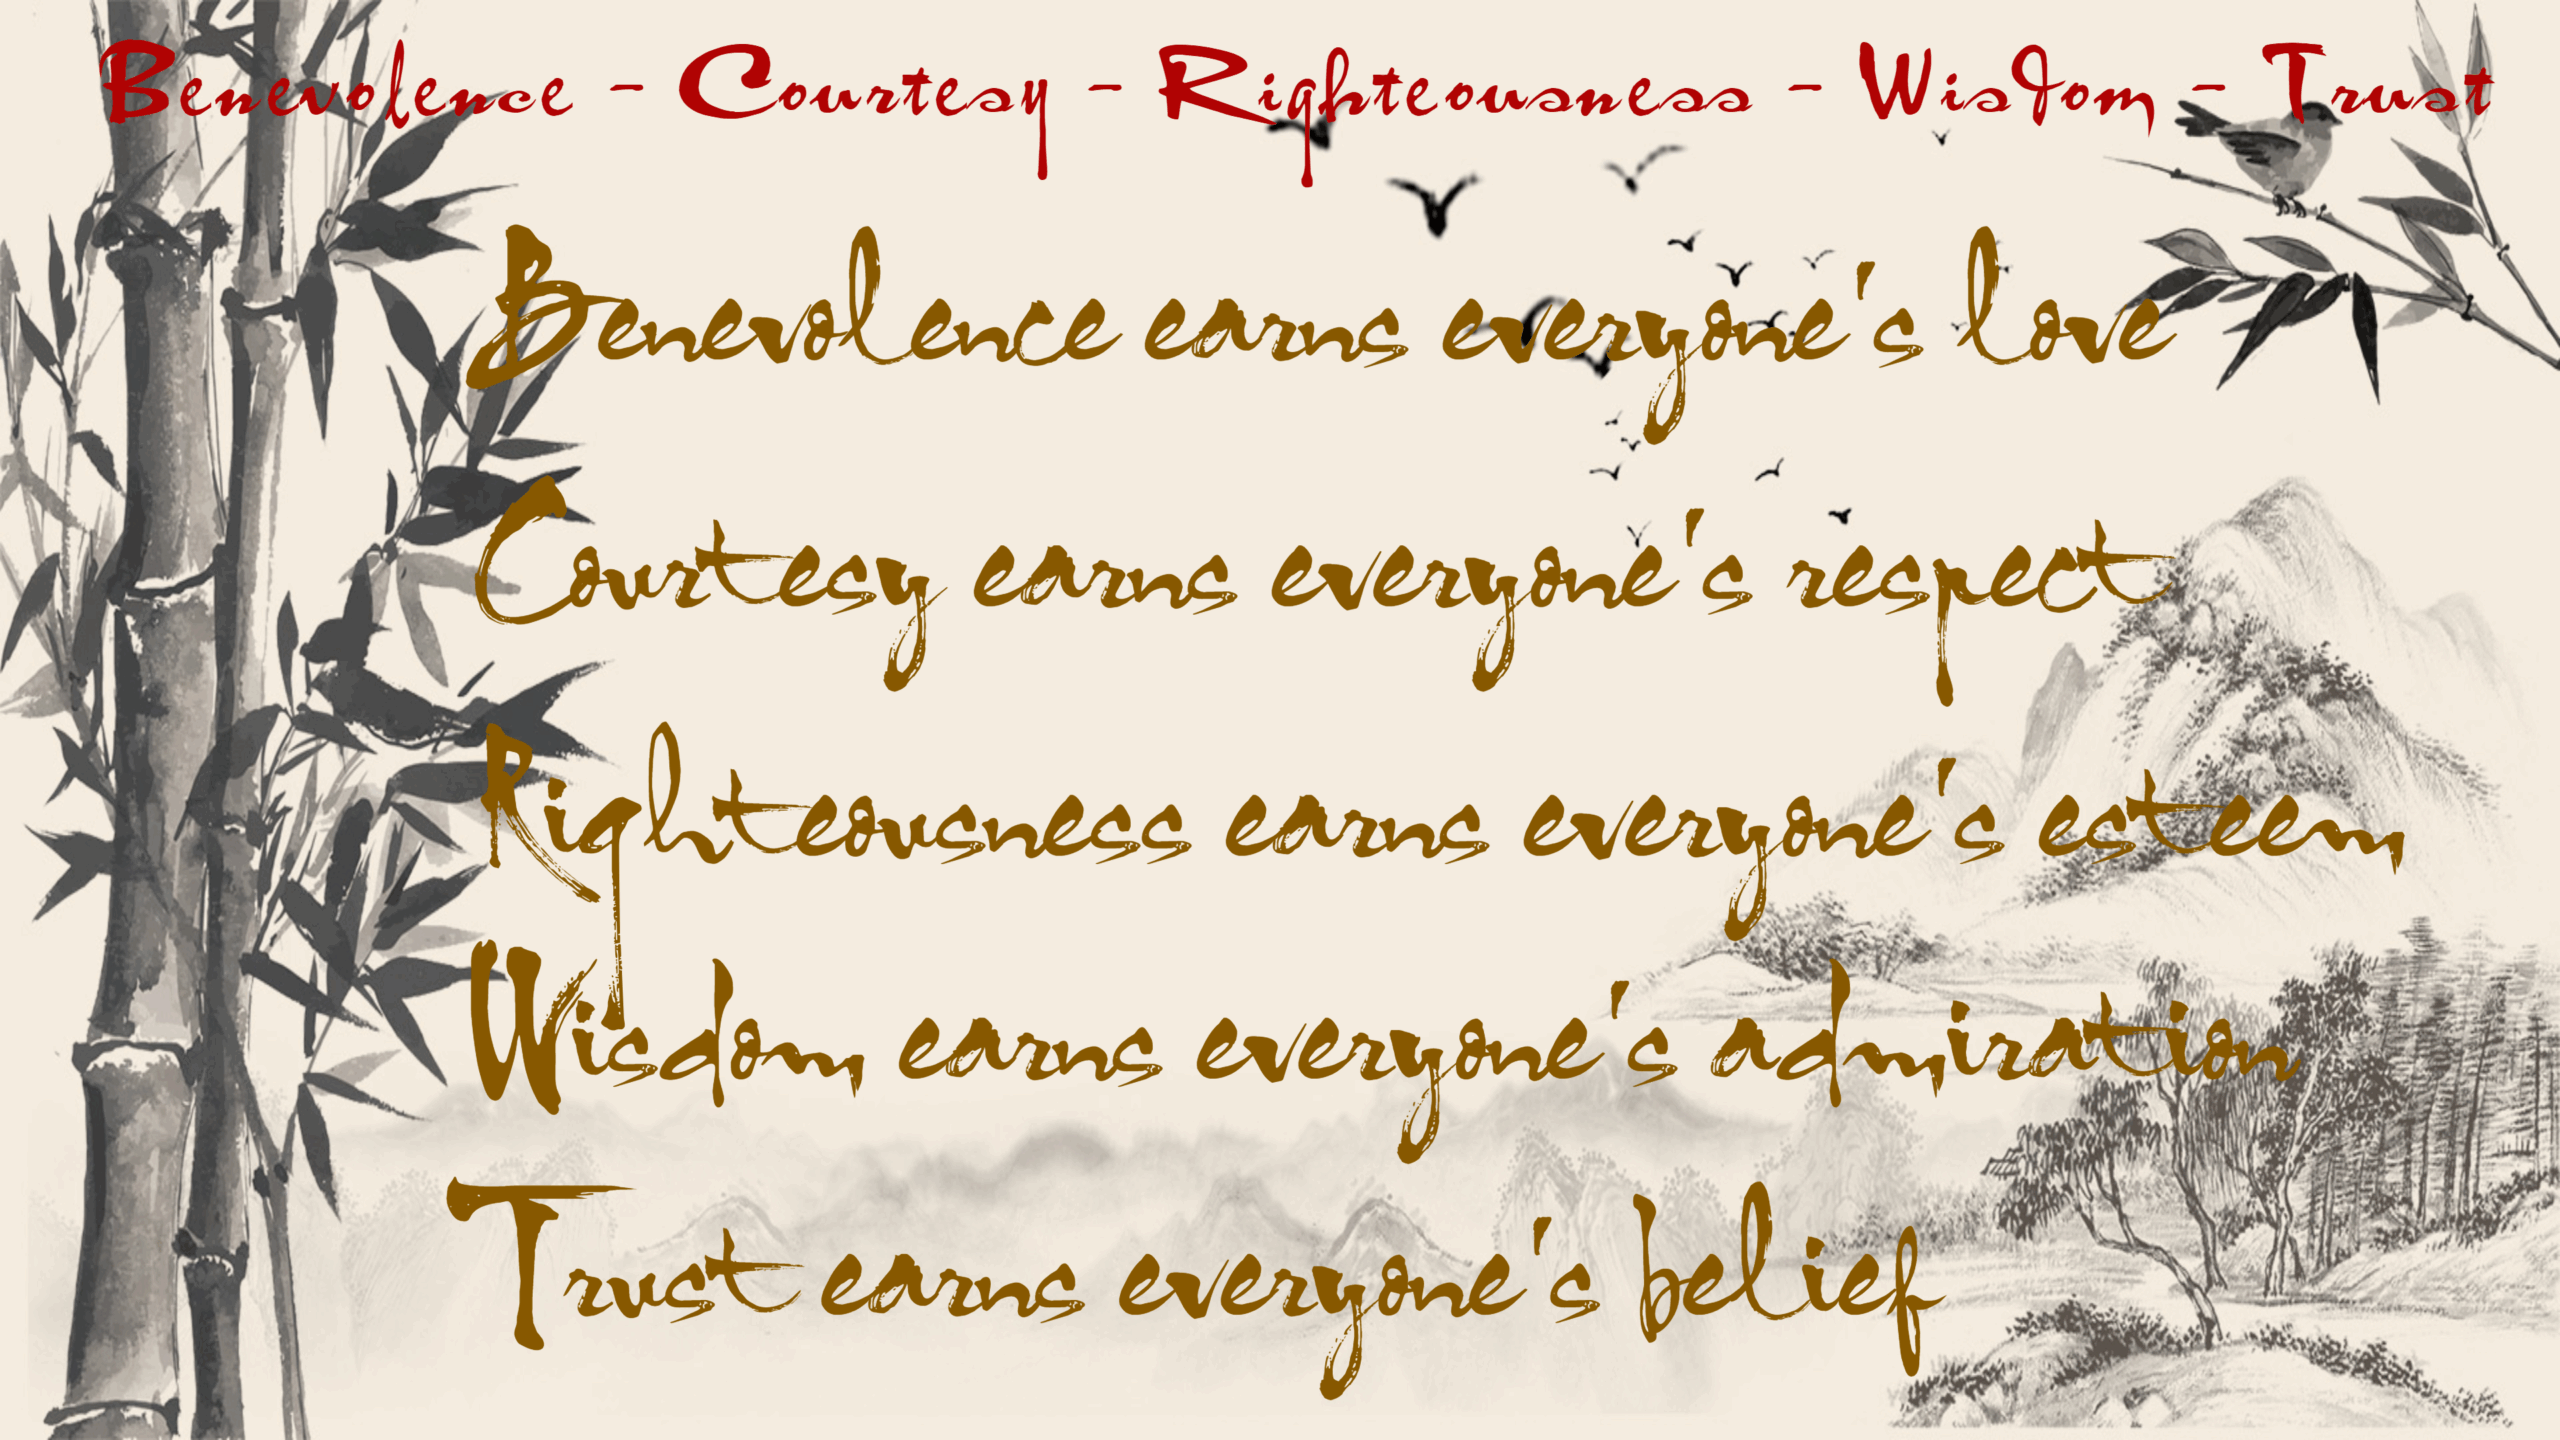 Benevolence - Courtesy - Righteousness - Wisdom - Trust
Benevolence earns everyone's love
Courtesy earns everyone's respect
Righteousness earns everyone's esteem
Wisdom earns everyone's admiration
Trust earns everyone's belief